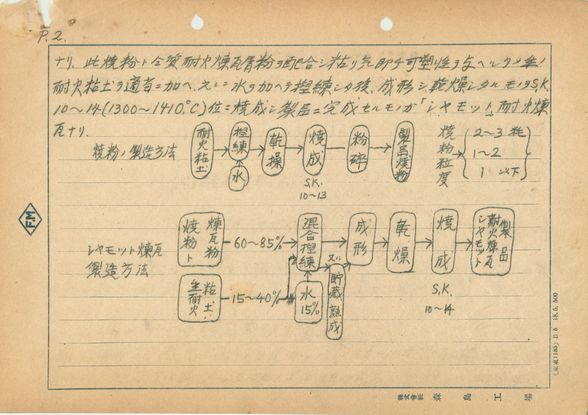 P.2.
ナリ、此焼粉ト仝質耐火煉瓦屑粉ヲ配合シ粘リ気即チ可塑性ヲ与ヘルタメ生ノ
耐火粘土ヲ適宜ニ加ヘ、又ハ水ヲ加ヘテ捏練シタ後、成形シ乾燥シタルモノヲS.K.
10〜14(1300〜1410℃)位ニ焼成シ製品ニ完成セルモノガ「シヤモット」耐火煉
瓦ナリ.
焼粉ノ製造方法
耐火粘土
捏練
水
乾燥
焼成
S.K.
10〜13
粉砕
製品焼粉
焼粉粒度
2〜3粍
1〜2
1 以下
シヤモット煉瓦
製造方法
焼粉ト煉瓦粉
60〜85%
生耐火粘土
15〜40%
混合捏練
水
15%
又ハ
貯蔵熟成
成形
乾燥
焼成
S.K.
10〜14
シヤモット耐火煉瓦製品
FM
株式會社 森島工場